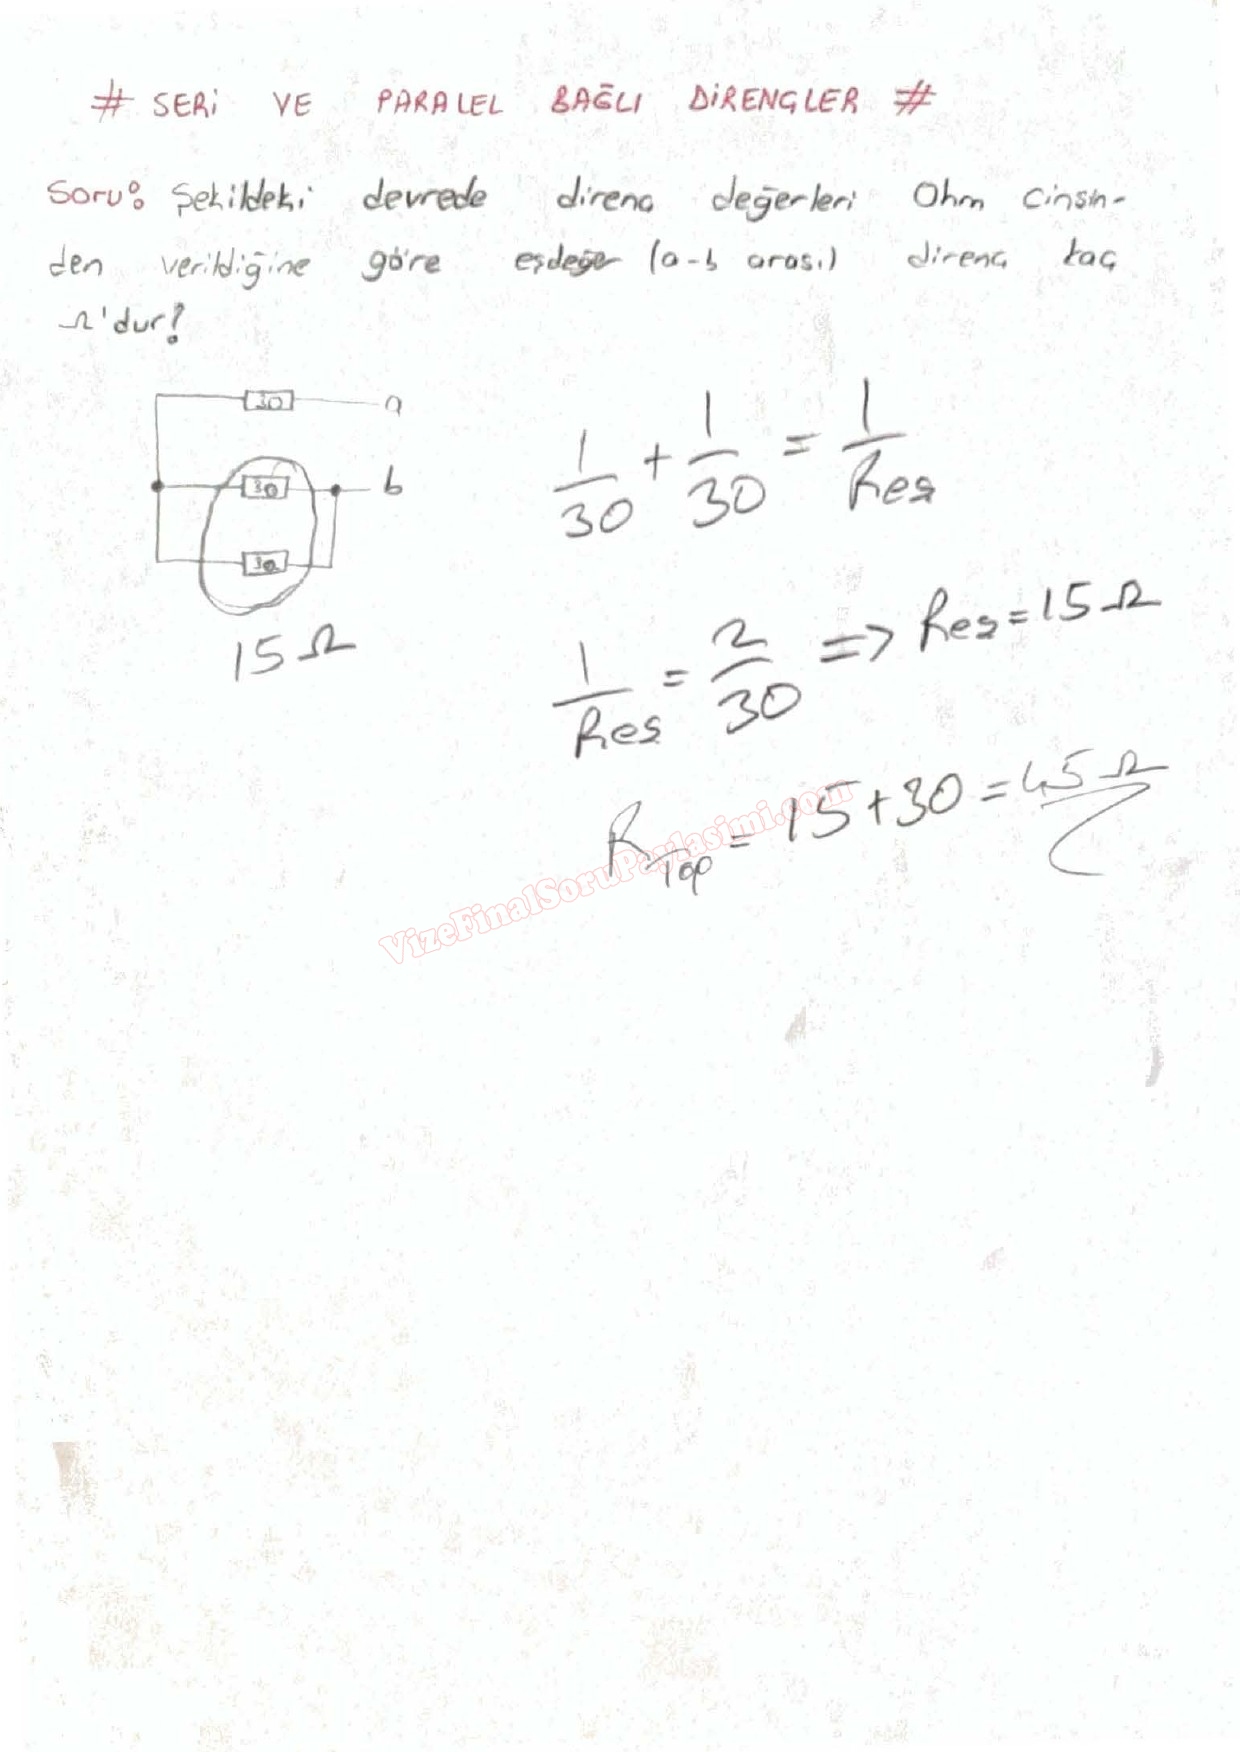 # SERİ VE PARALEL BAĞLI DİRENÇLER #
Soru: Şekildeki devrede direnç değerleri Ohm cinsin-
den verildiğine göre eşdeğer (a-b arası) direnç kaç
Ω'dur?
30 a
30 b
30
15 Ω
1/30 + 1/30 = 1/Reş
1/Reş = 2/30 => Reş = 15 Ω
RTop = 15+30 = 45 Ω
VizeFinalSoruPaylasimi.com